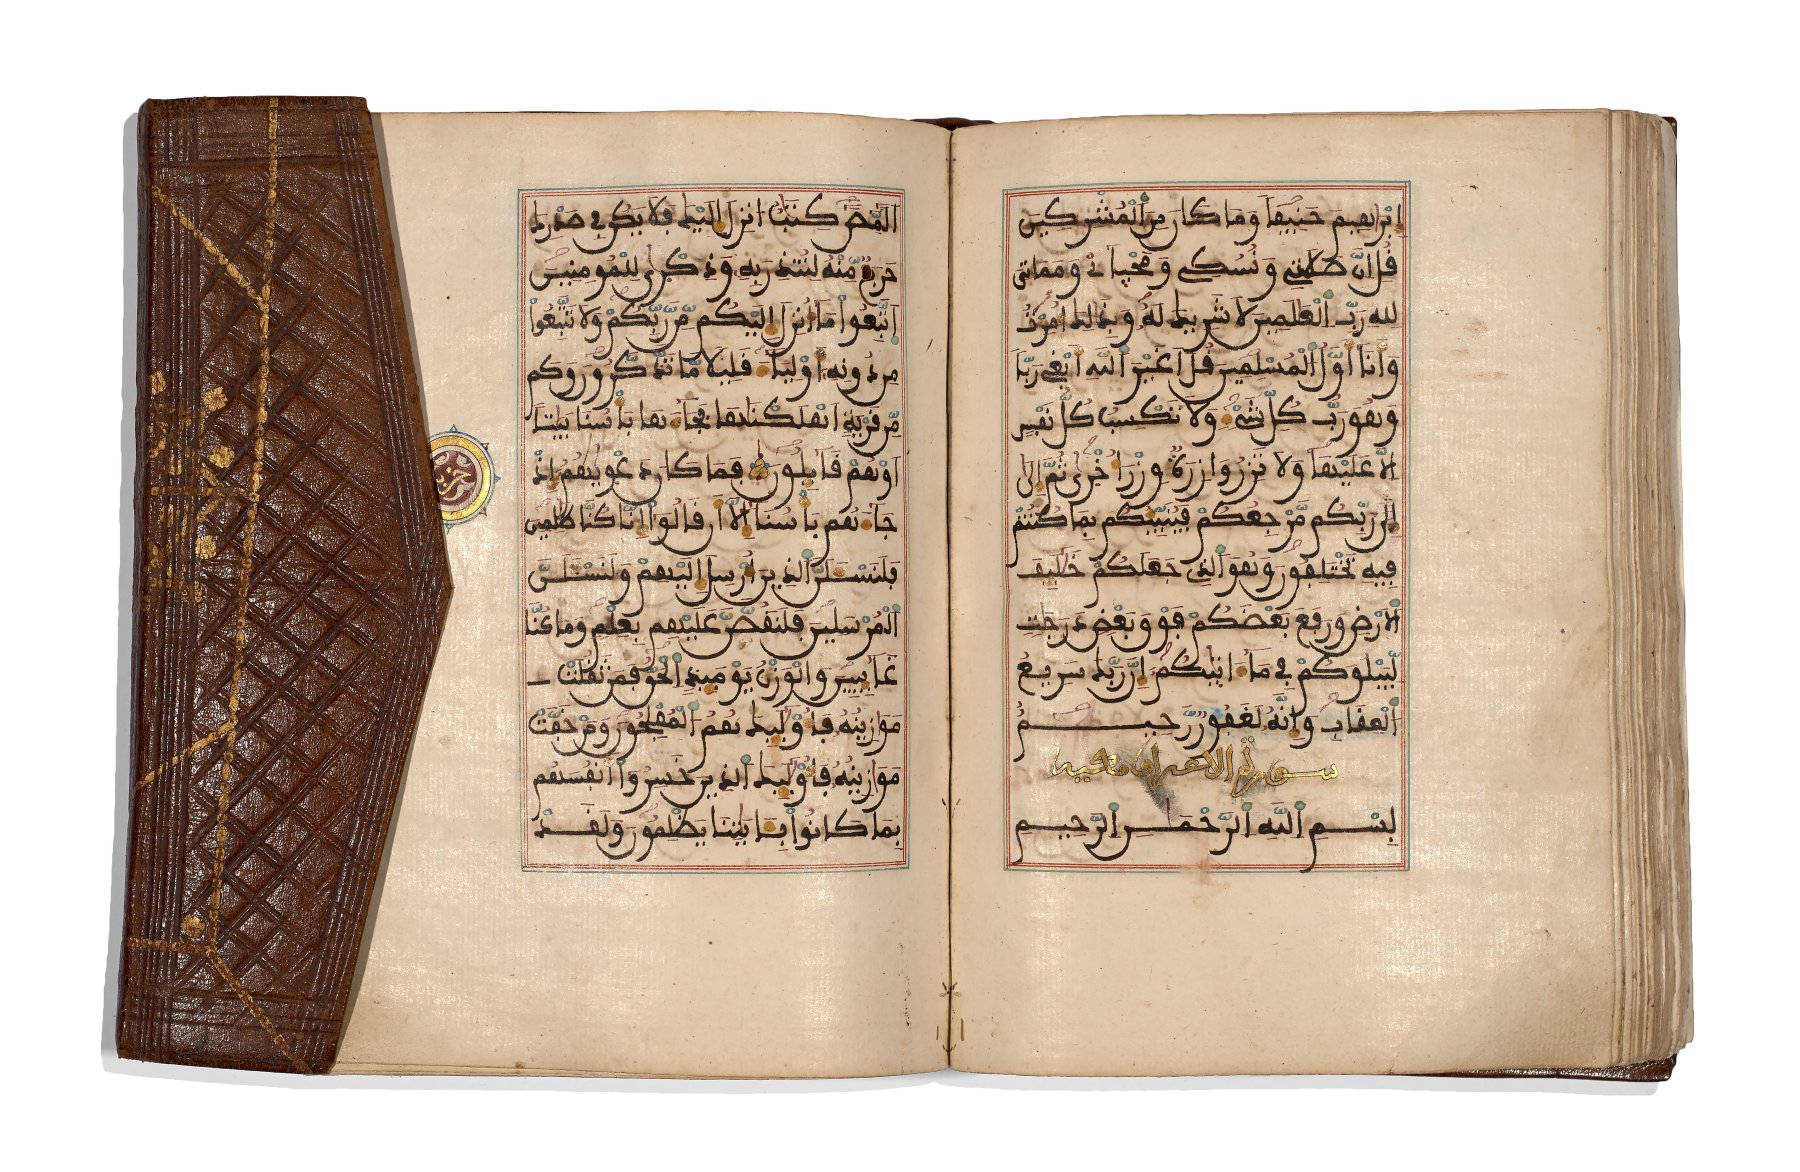 ابْرٰهِيمَ حَنِيفًا وَمَا كَانَ مِنَ الْمُشْرِكِينَ
قُلْ اِنَّ صَلَاتِي وَنُسُكِي وَمَحْيَاىْ وَمَمَاتِيَ
لِلهِ رَبِّ الْعٰلَمِينَ لَا شَرِيكَ لَهُ وَبِذٰلِكَ أُمِرْتُ
وَأَنَا أَوَّلُ الْمُسْلِمِينَ قُلَ اَغَيْرَ اللَّهِ أَبْغِي رَبًّا
وَهُوَ رَبُّ كُلِّ شَيْءٍ وَلَا تَكْسِبُ كُلُّ نَفْسٍ
اِلَّا عَلَيْهَا وَلَا تَزِرُ وَازِرَةٌ وِزْرَ أُخْرٰى ثُمَّ إِلٰى
إِلٰى رَبِّكُم مَّرْجِعُكُمْ فَيُنَبِّئُكُم بِمَا كُنتُمْ
فِيهِ تَخْتَلِفُونَ وَهُوَ الَّذِي جَعَلَكُمْ خَلٰٓئِفَ
الْأَرْضِ وَرَفَعَ بَعْضَكُمْ فَوْقَ بَعْضٍ دَرَجٰتٍ
لِّيَبْلُوَكُمْ فِي مَا ءَاتٰيكُمُ إِنَّ رَبَّكَ سَرِيعُ
الْعِقَابِ وَإِنَّهُ لَغَفُورٌ رَّحِيمٌ
سورة الاعراف مكية
بِسْمِ اللَّهِ الرَّحْمَنِ الرَّحِيمِ
الٓمّٓصٓ كِتٰبٌ انزِلَ إِلَيْكَ فَلَا يَكُن فِي صَدْرِكَ
حَرَجٌ مِّنْهُ لِتُنذِرَ بِهِ وَذِكْرٰى لِلْمُومِنِينَ
اتَّبِعُوا مَا أُنزِلَ إِلَيْكُم مِّن رَّبِّكُمْ وَلَا تَتَّبِعُوا
مِن دُونِهِ أَوْلِيَاءَ قَلِيلًا مَّا تَذَّكَّرُونَ وَكَم
مِّن قَرْيَةٍ اَهْلَكْنٰهَا فَجَاءَهَا بَأْسُنَا بَيٰتًا
اَوْ هُمْ قَائِلُونَ فَمَا كَانَ دَعْوٰيهُمُ إِذْ
جَاءَهُم بَأْسُنَا إِلَّا أَن قَالُوا إِنَّا كُنَّا ظٰلِمِينَ
فَلَنَسْـَٔلَنَّ الَّذِينَ أُرْسِلَ إِلَيْهِمْ وَلَنَسْـَٔلَنَّ
الْمُرْسَلِينَ فَلَنَقُصَّنَّ عَلَيْهِم بِعِلْمٍ وَمَا كُنَّا
غَائِبِينَ وَالْوَزْنُ يَوْمَئِذٍ الْحَقُّ فَمَن ثَقُلَتْ
مَوَازِينُهُ فَأُوْلٰئِكَ هُمُ الْمُفْلِحُونَ وَمَنْ خَفَّتْ
مَوَازِينُهُ فَأُوْلٰئِكَ الَّذِينَ خَسِرُوا أَنفُسَهُم
بِمَا كَانُوا بِـَٔايٰتِنَا يَظْلِمُونَ وَلَقَدْ
حزب